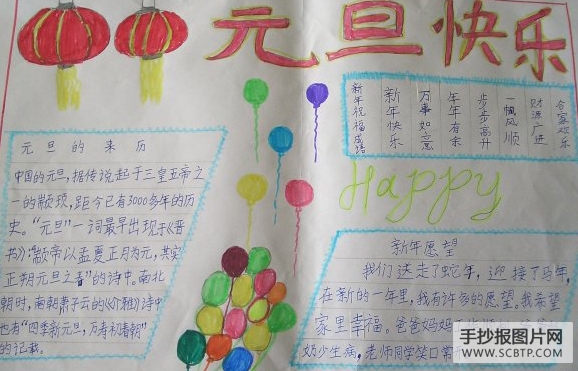 元旦快乐
新年祝福成语
新年快乐
万事如意
年年有余
步步高升
一帆风顺
财源广进
合家欢乐
Happy
元旦的来历
中国的元旦,据传说起于三皇五帝之
一的颛顼,距今已有3000多年的历
史。“元旦”一词最早出现于《晋
书》:“颛帝以孟夏正月为元,其实
正朔元旦之春”的诗中。南北
朝时,南朝萧子云的《介雅》诗中
也有“四季新元旦,万寿初春朝”
的记载。
新年愿望
我们送走了蛇年,迎接了马年,
在新的一年里,我有许多的愿望。我希望
家里幸福。爸爸妈妈
奶少生病,老师同学笑口常
手抄报图片网
WWW.SCBTP.COM